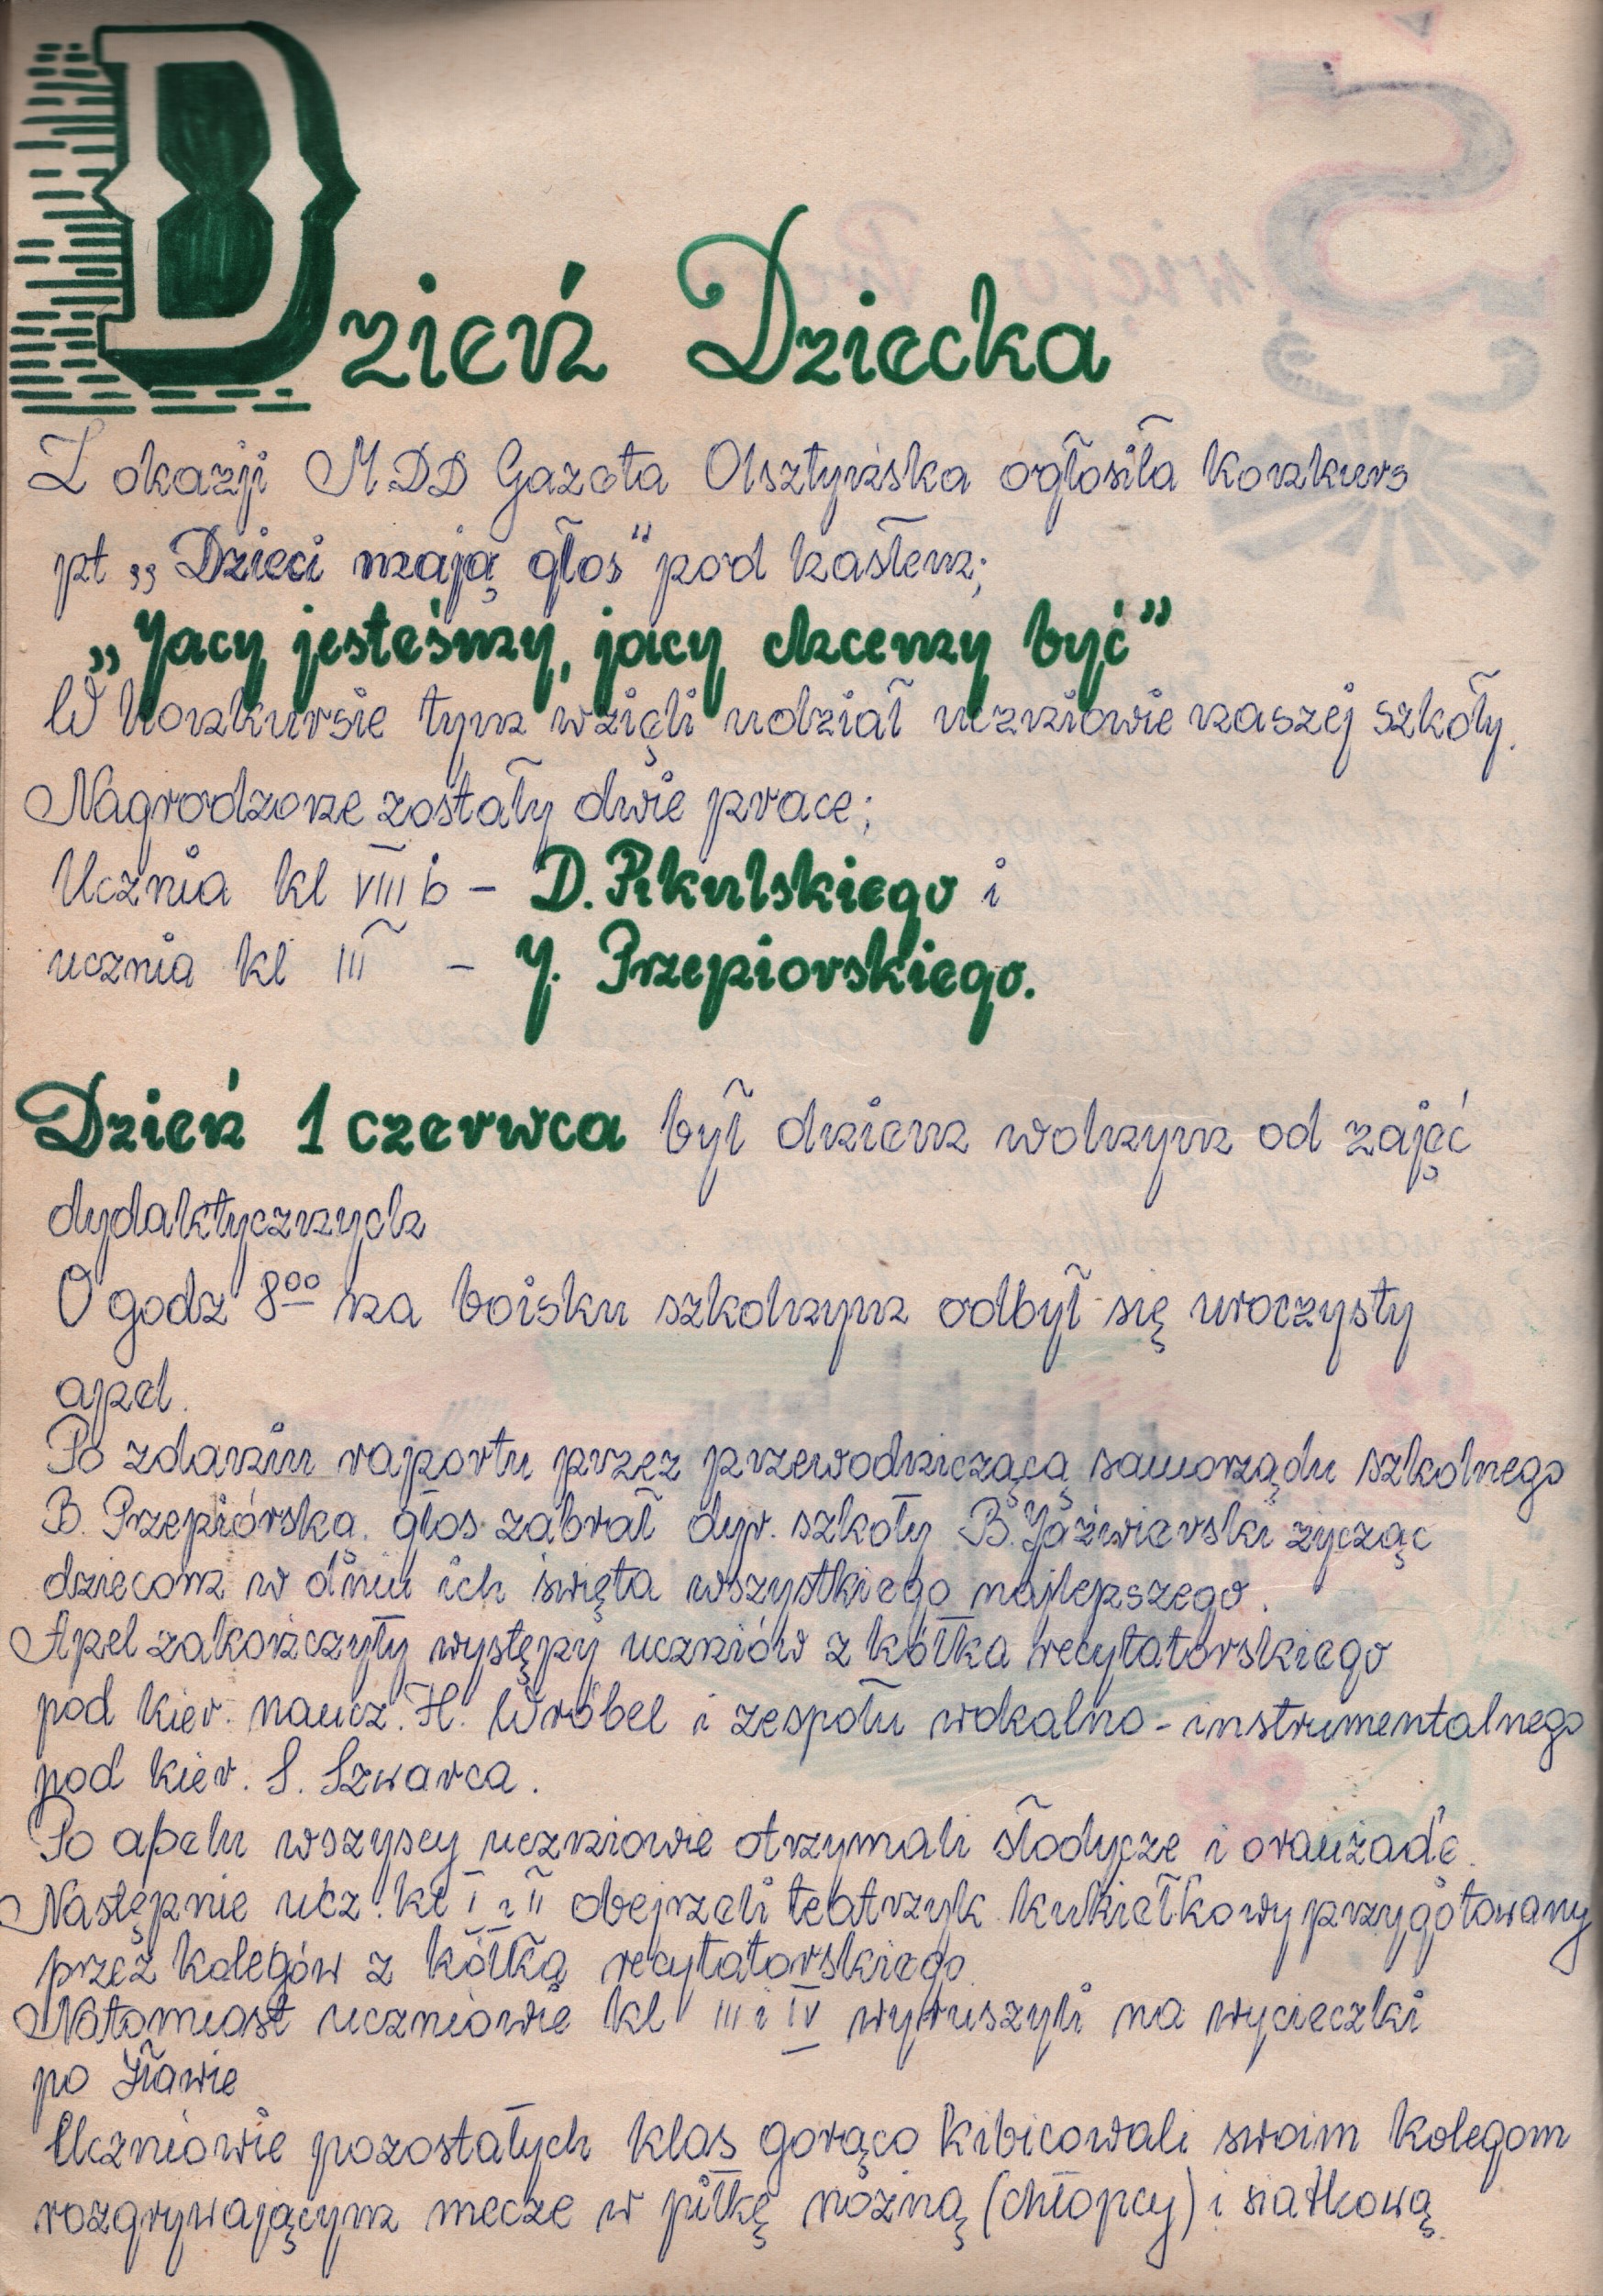 Dzień Dziecka
Z okazji MDD Gazeta Olsztyńska ogłosiła konkurs
pt „Dzieci mają głos" pod hasłem;
„Jacy jesteśmy, jacy chcemy być"
W konkursie tym wzięli udział uczniowie naszej szkoły.
Nagrodzone zostały dwie prace;
Ucznia kl VIII b - D. Pikulskiego i
ucznia kl III - J. Przepiorskiego.
Dzień 1 czerwca był dniem wolnym od zajęć
dydaktycznych
O godz 8⁰⁰ na boisku szkolnym odbył się uroczysty
apel.
Po zdaniu raportu przez przewodniczącą samorządu szkolnego
B. Przepiórską. głos zabrał dyr. szkoły B. Jaźwierski życząc
dzieciom w dniu ich święta wszystkiego najlepszego.
Apel zakończyły występy uczniów z kółka recytatorskiego
pod kier. naucz. H. Wróbel i zespołu wokalno-instrumentalnego
pod kier. S. Szwarca.
Po apelu wszyscy uczniowie otrzymali słodycze i oranżadę.
Następnie ucz. kl I i II obejrzeli teatrzyk kukiełkowy przygotowany
przez kolegów z kółka recytatorskiego.
Natomiast uczniowie kl III i IV wyruszyli na wycieczki
po Iławie
Uczniowie pozostałych klas gorąco kibicowali swoim kolegom
rozgrywającym mecze w piłkę nożną (chłopcy) i siatkową